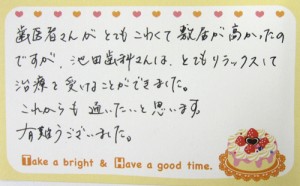 歯医者さんがとてもこわくて敷居が高かったの
ですが、池田歯科さんは、とてもリラックスして
治療を受けることができました。
これからも通いたいと思います。
有難うございました。
Take a bright & Have a good time.